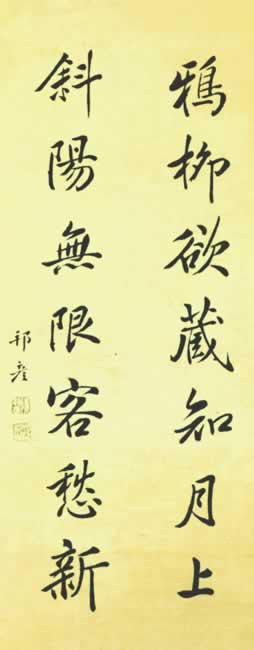 鴉柳欲藏知月上
斜陽無限客愁新
邦彥